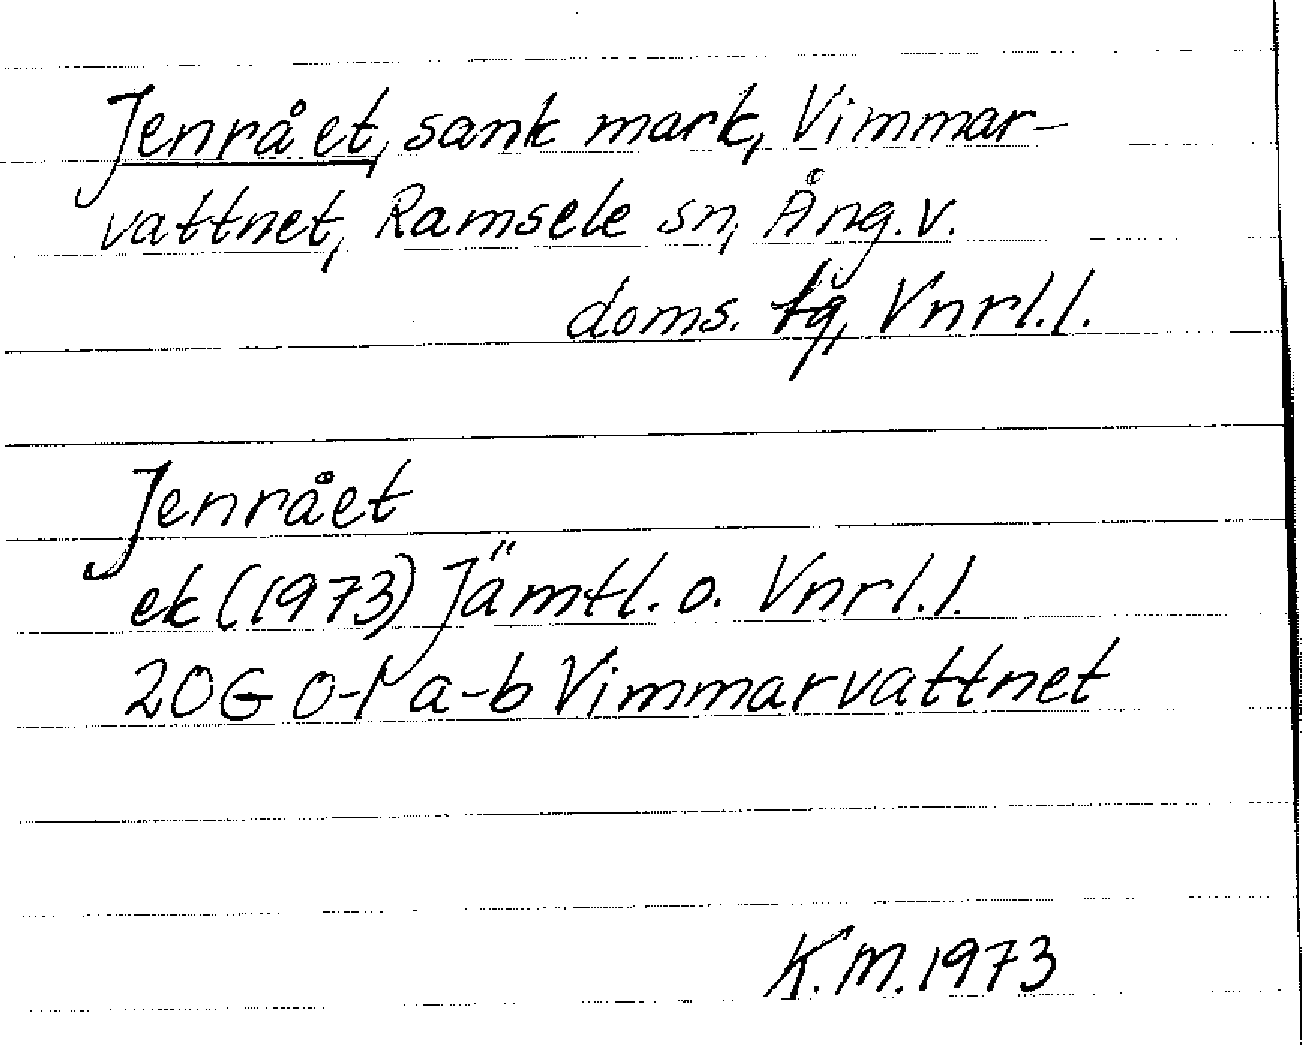 Jenrået, sank mark, Vimmar-
vattnet, Ramsele sn, Ång.v.
doms. tg, Vnrl.l.
Jenrået
ek (1973) Jämtl. o. Vnrl.l.
20G 0-1 a-b Vimmarvattnet
K.M. 1973